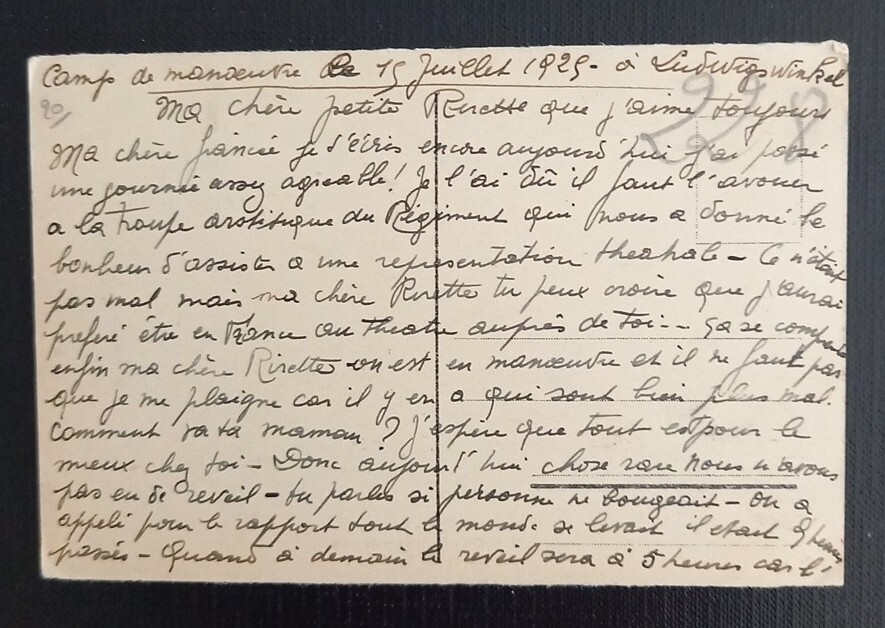 Camp de manœuvre le 15 Juillet 1925 - à Ludwigswinkel
Ma chère petite Rirette que j'aime toujours
Ma chère fiancée je t'écris encore aujourd'hui j'ai passé
une journée assez agreable! Je l'ai dû il faut l'avouer
a la Troupe artistique du Régiment qui nous a donné le
bonheur d'assister a une representation theatrale - Ce n'était
pas mal mais ma chère Rirette tu peux croire que j'aurai
preferé être en France au theatre auprès de toi -- ça se comprend
enfin ma chère Rirette on est en manœuvre et il ne faut pas
que je me plaigne car il y en a qui sont bien plus mal.
Comment va ta maman? J'espère que tout est pour le
mieux chez toi - Donc aujourd'hui chose rare nous n'avons
pas eu de reveil - tu parles si personne ne bougeait - On a
appelé pour le rapport tout le monde se levait il etait 9 heures
passés - Quand à demain le reveil sera à 5 heures car l'